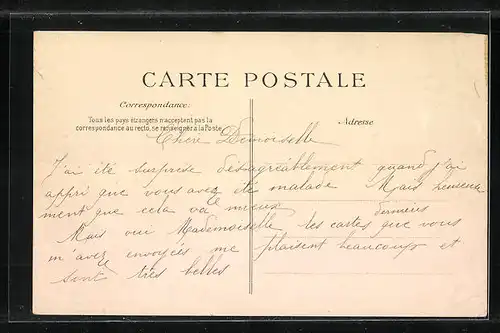 CARTE POSTALE
Correspondance
Tous les pays étrangers n'acceptent pas la
correspondance au recto, se renseigner à la Poste
Adresse
Chère Demoiselle
J'ai été surprise désagréablement quand j'ai
appri que vous avez été malade Mais heureuse
ment que cela va mieux
derniers
Mais oui Mademoiselle les cartes que vous
m avez envoyées me plaisent beaucoup et
sont très belles